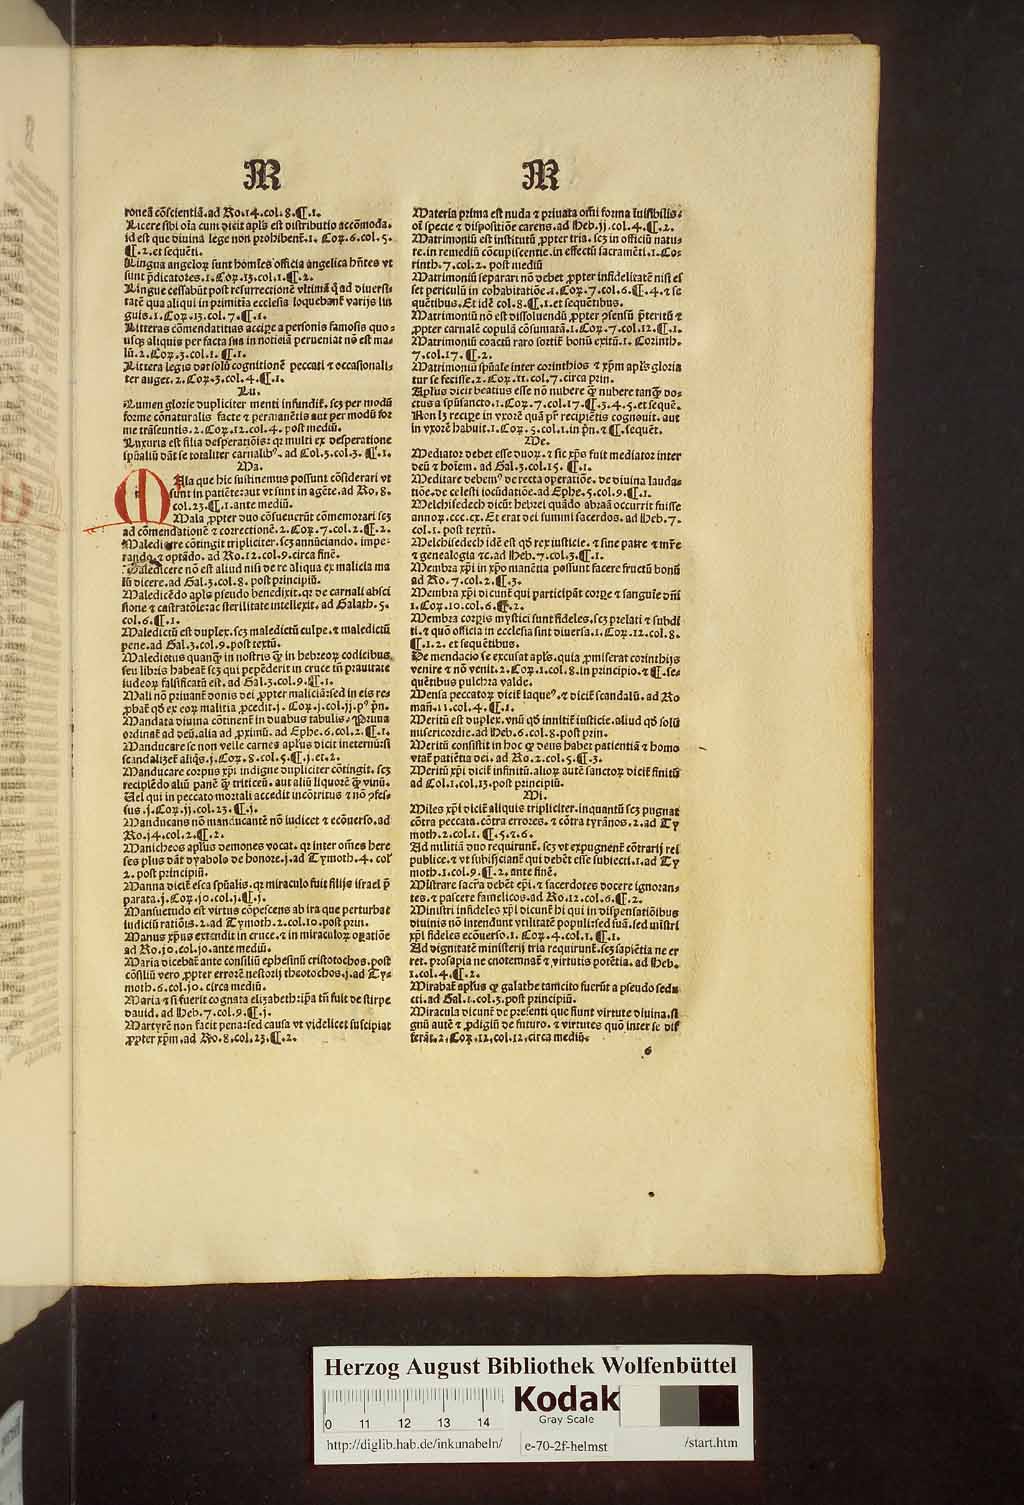 M
roneā cōscientiā. ad Ro. 14. col. 8. ¶. 1.
Licere sibi oīa cum dicit apl's est distributio accōmoda.
id est que diuina lege non prohibent̃. 1. Coꝝ. 6. col. 5.
¶. 2. et sequēti.
Lingua angeloꝝ sunt homīes officia angelica hñtes vt
sunt p̄dicatores. 1. Coꝝ. 13. col. 1. ¶. 2.
Lingue cessabūt post resurrectionē vltimā q̃ ad diuersi-
tatē qua aliqui in primitia ecclesia loquebant̃ varijs lin
guis. 1. Coꝝ. 13. col. 7. ¶. 1.
Litteras cōmendatitias accipe a personis famosis quo-
usqꝫ aliquis per facta sua in noticiā perueniat nō est ma-
lū. 2. Coꝝ. 3. col. 1. ¶. 1.
Littera legis dat solū cognitionē peccati ⁊ occasionali-
ter auget. 2. Coꝝ. 3. col. 4. ¶. 1.
Lu.
Lumen glorie dupliciter menti infundit̃. scꝫ per modū
forme cōnaturalis facte ⁊ permanētis aut per modū for
me trāseuntis. 2. Coꝝ. 12. col. 4. post mediū.
Luxuria est filia desperatiōis: qꝛ multi ex desperatione
spūaliū dāt se totaliter carnalibꝰ. ad Col. 3. col. 3. ¶. 1.
Ma.
MAla que hic sustinemus possunt cōsiderari vt
sunt in patiēte: aut vt sunt in agēte. ad Ro. 8.
col. 23. ¶. 1. ante mediū.
Mala ꝓpter duo cōsueuerūt cōmemorari scꝫ
ad cōmendationē ⁊ correctionē. 2. Coꝝ. 7. col. 2. ¶. 2.
Maledicere cōtingit tripliciter. scꝫ annūciando. impe-
rando. ⁊ optādo. ad Ro. 12. col. 9. circa finē.
Maledicere nō est aliud nisi de re aliqua ex malicia ma
lū dicere. ad Gal. 3. col. 8. post principiū.
Maledicēdo apl's pseudo benedixit. qꝛ de carnali absci
sione ⁊ castratōie: ac sterilitate intellexit. ad Galath. 5.
col. 6. ¶. 1.
Maledictū est duplex. scꝫ maledictū culpe. ⁊ maledictū
pene. ad Gal. 3. col. 9. post textū.
Maledictus quanqꝫ in nostris qꝫ in hebreoꝝ codicibus
seu libris habeat̃ scꝫ qui pepēderit in cruce tñ prauitate
iudeoꝝ falsificatū est. ad Gal. 3. col. 9. ¶. 1.
Mali nō priuant̃ donis dei ꝓpter maliciā: sed in eis re-
ꝓbat̃ qð ex eoꝝ malitia ꝓcedit. j. Coꝝ. j. col. jj. pꝰ pñ.
Mandata diuina cōtinent̃ in duabus tabulis. Prima
ordinat̃ ad deū. alia ad ꝓximū. ad Ephe. 6. col. 2. ¶. 1.
Manducare se non velle carnes apl'us dicit in eternū: si
scandalizet̃ aliq̃s. j. Coꝝ. 8. col. 5. ¶. j. et. 2.
Manducare corpus xp̄i indigne dupliciter cōtingit. scꝫ
recipiēdo aliū panē qꝫ triticeū. aut aliū liquorē qꝫ vinū.
Uel qui in peccato mortali accedit incōtritus ⁊ nō ꝯfes-
sus. j. Coꝝ. jj. col. 23. ¶. j.
Manducans nō manducantē nō iudicet ⁊ ecōuerso. ad
Ro. j4. col. 2. ¶. 2.
Manicheos apl'us demones vocat. qꝛ inter om̄es here
ses plus dāt dyabolo de honore. j. ad Tymoth. 4. col'
2. post principiū.
Manna dicit̃ esca spūalis. qꝛ miraculo fuit filijs israel p̄
parata. j. Coꝝ. jo. col. j. ¶. j.
Mansuetudo est virtus cōpescens ab ira que perturbat
iudiciū ratiōis. 2. ad Tymoth. 2. col. 10. post prin.
Manus xp̄us extendit in cruce. ⁊ in miraculoꝝ oꝑatiōe
ad Ro. jo. col. jo. ante mediū.
Maria dicebat̃ ante consiliū ephesinū cristotochos. post
cōsiliū vero ꝓpter errorē nestorij theotochos. j. ad Ty-
moth. 6. col. jo. circa mediū.
Maria ⁊ si fuerit cognata elizabeth: ip̄a tñ fuit de stirpe
dauid. ad Heb. 7. col. 9. ¶. j.
Martyrē non facit pena: sed causa vt videlicet suscipiat̃
ꝓpter xp̄m. ad Ro. 8. col. 23. ¶. 2.
M
Materia prima est nuda ⁊ priuata om̄i forma īuisibilis.
oī specie ⁊ dispositiōe carens. ad Heb. jj. col. 4. ¶. 2.
Matrimoniū est institutū ꝓpter tria. scꝫ in officiū natu-
re. in remediū cōcupiscentie. in effectū sacramēti. 1. Co-
rinth. 7. col. 2. post mediū
Matrimoniū separari nō debet ꝓpter infidelitatē nisi es
set periculū in cohabitatiōe. 1. Coꝝ. 7. col. 6. ¶. 4. ⁊ se
quētibus. Et idē col. 8. ¶. 1. et sequētibus.
Matrimoniū nō est dissoluendū ꝓpter ꝯsensū p̄teritū ⁊
ꝓpter carnalē copulā cōsumatā. 1. Coꝝ. 7. col. 12. ¶. 1.
Matrimoniū coactū raro sortit̃ bonū exitū. 1. Corinth.
7. col. 17. ¶. 2.
Matrimoniū spūale inter corinthios ⁊ xp̄m apl's gloria
tur se fecisse. 2. Coꝝ. 11. col. 7. circa prin.
Apl'us dicit beatius esse nō nubere qꝫ nubere tanqꝫ do-
ctus a spūsancto. 1. Coꝝ. 7. col. 17. ¶. 3. 4. 5. et sequē.
Non lꝫ recipe in vxorē quā pr̄ recipiētis cognouit. aut
in vxorē habuit. 1. Coꝝ. 5. col. 1. in pñ. ⁊ ¶. sequēt.
Me.
Mediator debet esse duoꝝ. ⁊ sic xp̄s fuit mediator inter
deū ⁊ hoīem. ad Gal. 3. col. 15. ¶. 1.
Meditare debemꝰ de recta operatiōe. de diuina lauda-
tiōe. de celesti iocūdatiōe. ad Ephe. 5. col. 9. ¶. 1.
Melchisedech dicūt hebrei quādo abraā occurrit fuisse
annoꝝ. ccc. cx. Et erat dei summi sacerdos. ad Heb. 7.
col. 1. post textū.
Melchisedech idē est qð rex iusticie. ⁊ sine patre ⁊ mr̄e
⁊ genealogia ⁊c. ad Heb. 7. col. 3. ¶. 1.
Membra xp̄i in xp̄o manētia possunt facere fructū bonū
ad Ro. 7. col. 2. ¶. 3.
Membra xp̄i dicunt̃ qui participāt corpe ⁊ sanguīe dñi
1. Coꝝ. 10. col. 6. ¶. 2.
Membra corpis mystici sunt fideles. scꝫ prelati ⁊ subdi
ti. ⁊ quō officia in ecclesia sint diuersa. 1. Coꝝ. 12. col. 8.
¶. 1. 2. et sequētibus.
De mendacio se excusat apl's. quia ꝓmiserat corinthijs
venire ⁊ nō venit. 2. Coꝝ. 1. col. 8. in principio. ⁊ ¶. se-
quētibus pulchra valde.
Mensa peccatoꝝ dicit̃ laqueꝰ. ⁊ dicit̃ scandalū. ad Ro
man. 11. col. 4. ¶. 1.
Meritū est duplex. vnū qð innitit̃ iusticie. aliud qð solū
misericordie. ad Heb. 6. col. 8. post prin.
Meritū consistit in hoc qꝫ deus habet patientiā ⁊ homo
vtat̃ patiētia dei. ad Ro. 2. col. 5. ¶. 3.
Meritū xp̄i dicit̃ infinitū. alioꝝ autē sanctoꝝ dicit̃ finitū
ad Col. 1. col. 13. post principiū.
Mi.
Miles xp̄i dicit̃ aliquis tripliciter. inquantū scꝫ pugnat
cōtra peccata. cōtra errores. ⁊ cōtra tyrānos. 2. ad Ty
moth. 2. col. 1. ¶. 5. ⁊. 6.
Ad militiā duo requirunt̃. scꝫ vt expugnent̃ cōtrarij rei
publice. ⁊ vt subijciant̃ qui debēt esse subiecti. 1. ad Ty
moth. 1. col. 9. ¶. 2. ante finē.
Mīstrare sacra debēt ep̄i. ⁊ sacerdotes docere ignoran-
tes. ⁊ pascere famelicos. ad Ro. 12. col. 6. ¶. 2.
Ministri infideles xp̄i dicunt̃ hi qui in dispensatiōibus
diuinis nō intendunt vtilitatē populi: sed suā. sed mīstri
xp̄i fideles ecōuerso. 1. Coꝝ. 4. col. 1. ¶. 1.
Ad dignitatē ministerij tria requirunt̃. scꝫ sapiētia ne er
ret. prosapia ne cōtemnat̃ ⁊ virtutis potētia. ad Heb.
1. col. 4. ¶. 2.
Mirabat̃ apl'us qꝫ galathe tamcito fuerūt a pseudo sedu
cti. ad Gal. 1. col. 3. post principiū.
Miracula dicunt̃ de presenti que fiunt virtute diuina. si
gnū autē ⁊ ꝓdigiū de futuro. ⁊ virtutes quō inter se dif
ferāt. 2. Coꝝ. 12. col. 12. circa mediū.
6
Herzog August Bibliothek Wolfenbüttel
0 11 12 13 14
Kodak
Gray Scale
http://diglib.hab.de/inkunabeln/
e-70-2f-helmst
/start.htm